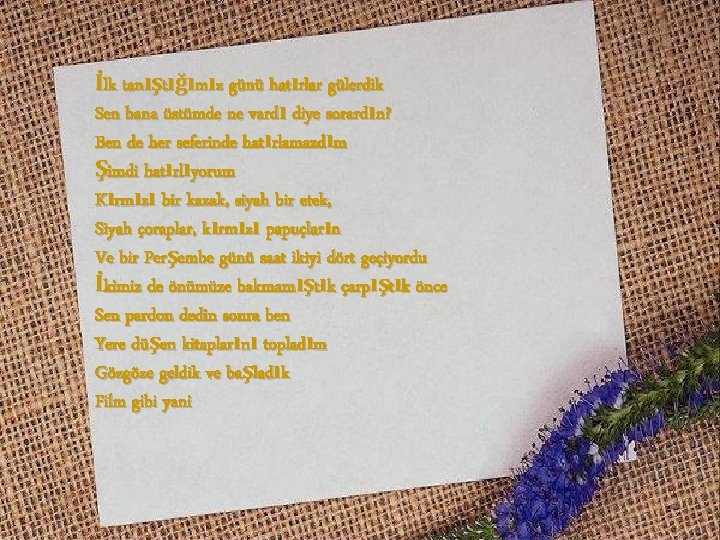 İlk tanıştığımız günü hatırlar gülerdik
Sen bana üstümde ne vardı diye sorardın?
Ben de her seferinde hatırlamazdım
Şimdi hatırlıyorum
Kırmızı bir kazak, siyah bir etek,
Siyah çoraplar, kırmızı papuçların
Ve bir Perşembe günü saat ikiyi dört geçiyordu
İkimiz de önümüze bakmamıştık çarpıştık önce
Sen pardon dedin sonra ben
Yere düşen kitaplarını topladım
Gözgöze geldik ve başladık
Film gibi yani